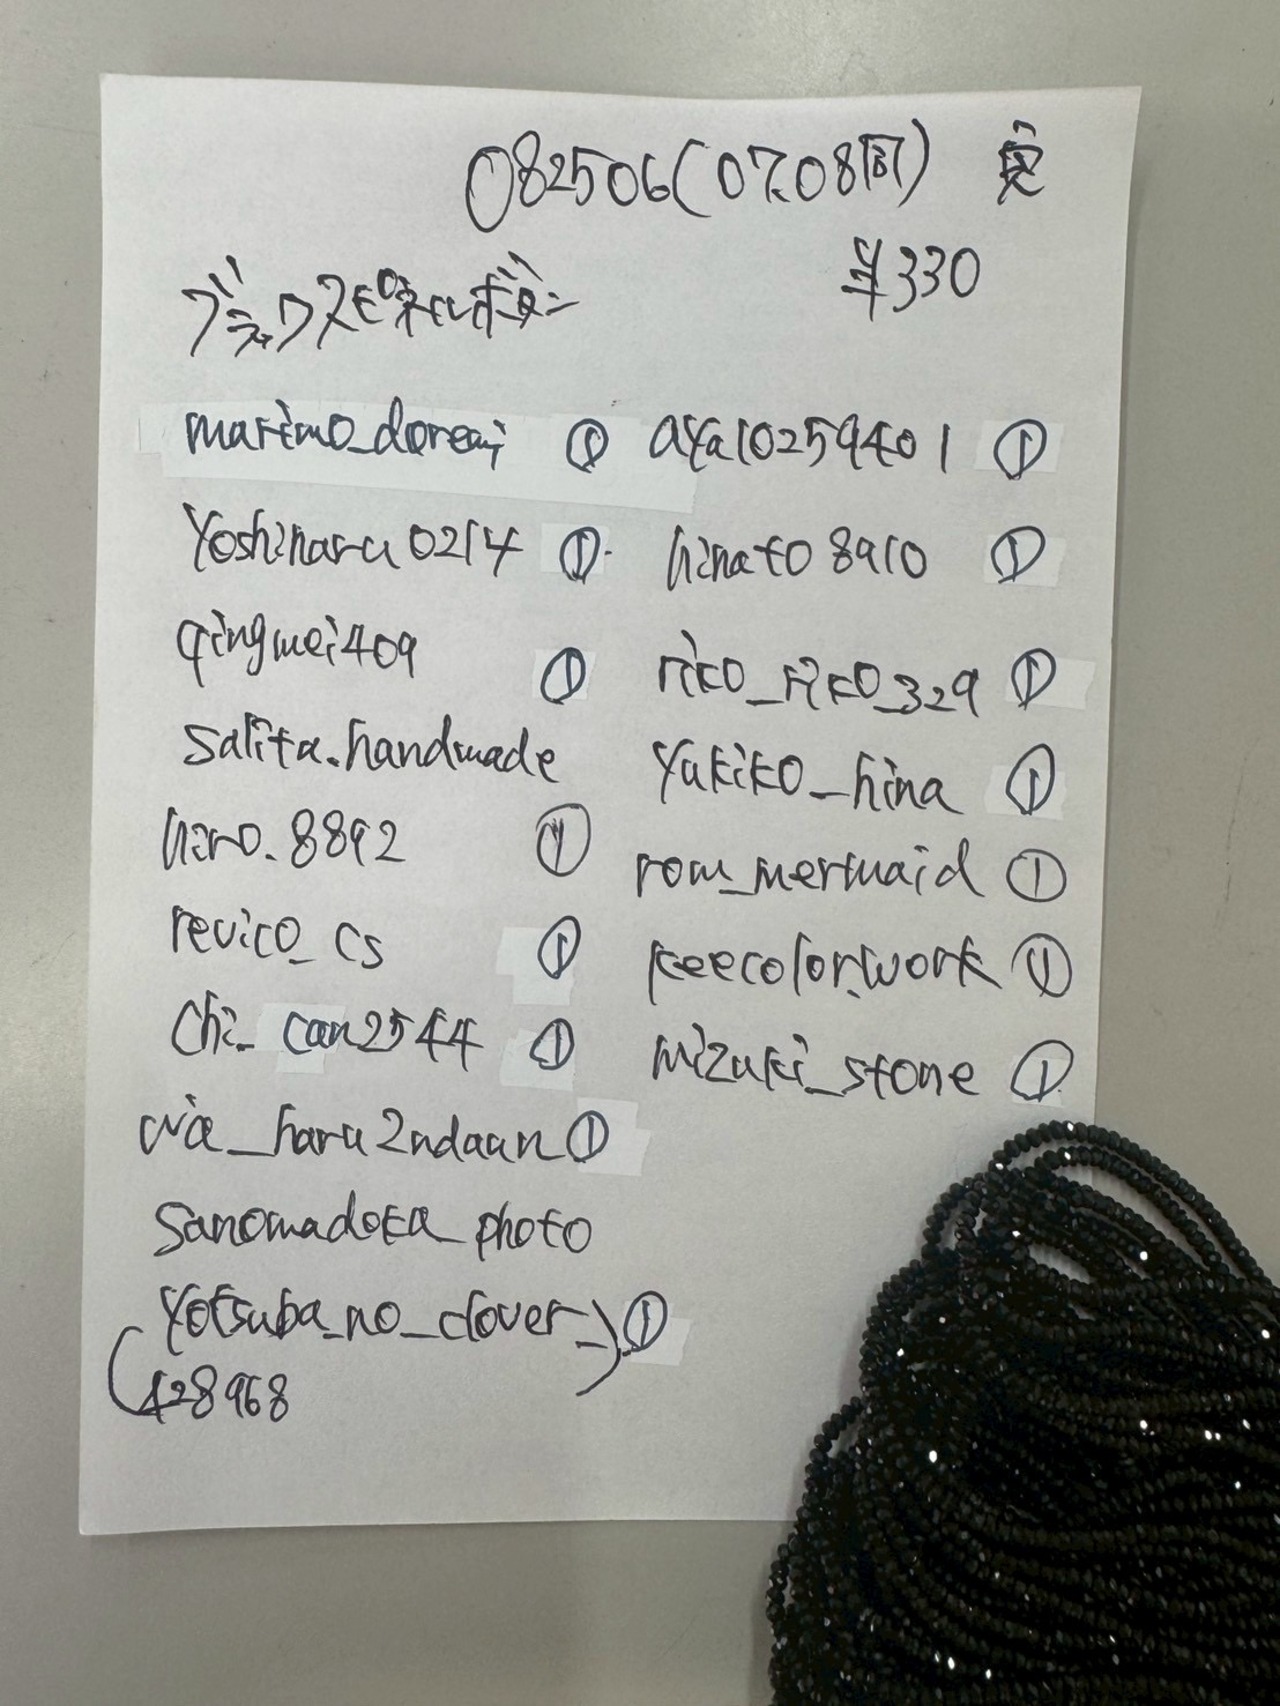 082506(07.08同)
¥330
ブラックスピネルボタン
marimo_doremi ①
yoshiharu0214 ①
qingmei409 ①
salita.handmade
hiro.8892 ①
revico_cs ①
chi_can2544 ①
via_haru2ndaan ①
sanomadoka_photo
yotsuba_no_clover_ ①
(428968)
aya10259401 ①
hinato8910 ①
riko_riko_329 ①
yukiko_hina ①
rom_mermaid ①
keecolor.work ①
mizuki_stone ①